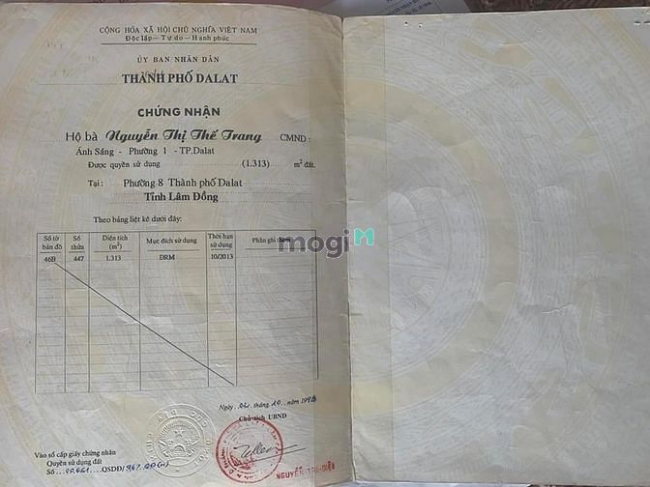 CỘNG HÒA XÃ HỘI CHỦ NGHĨA VIỆT NAM
Độc lập - Tự do - Hạnh phúc
ỦY BAN NHÂN DÂN
THÀNH PHỐ DALAT
CHỨNG NHẬN
Hộ bà Nguyễn Thị Thế Trang CMND :
Ánh Sáng - Phường 1 - TP.Dalat
Được quyền sử dụng (1.313) m² đất.
Tại : Phường 8 Thành phố Dalat
Tỉnh Lâm Đồng
Theo bảng liệt kê dưới đây:
Số tờ bản đồ Số thửa Diện tích (m²) Mục đích sử dụng Thời hạn sử dụng Phần ghi
46B 447 1.313 ĐRM 10/2013
mogi
Ngày tháng 10 năm
Chủ tịch UBND
Vào sổ cấp giấy chứng nhận
Quyền sử dụng đất
Số QSDĐ/
NGUYỄN